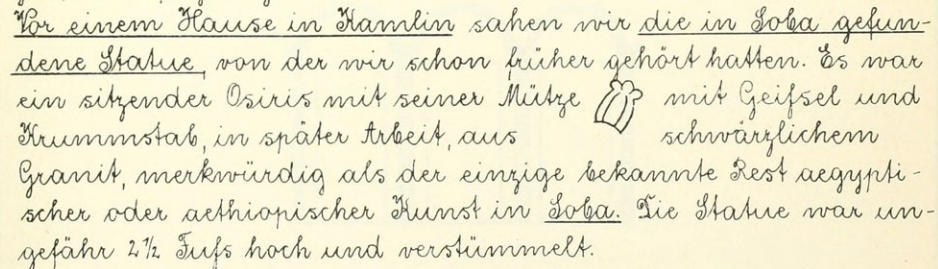 Vor einem Hause in Kamlin sahen wir die in Soba gefun-
dene Statue, von der wir schon früher gehört hatten. Es war
ein sitzender Osiris mit seiner Mütze mit Geifsel und
Krummstab, in später Arbeit, aus schwärzlichem
Granit, merkwürdig als der einzige bekannte Rest aegypti-
scher oder aethiopischer Kunst in Soba. Die Statue war un-
gefähr 2 1/2 Fufs hoch und verstümmelt.